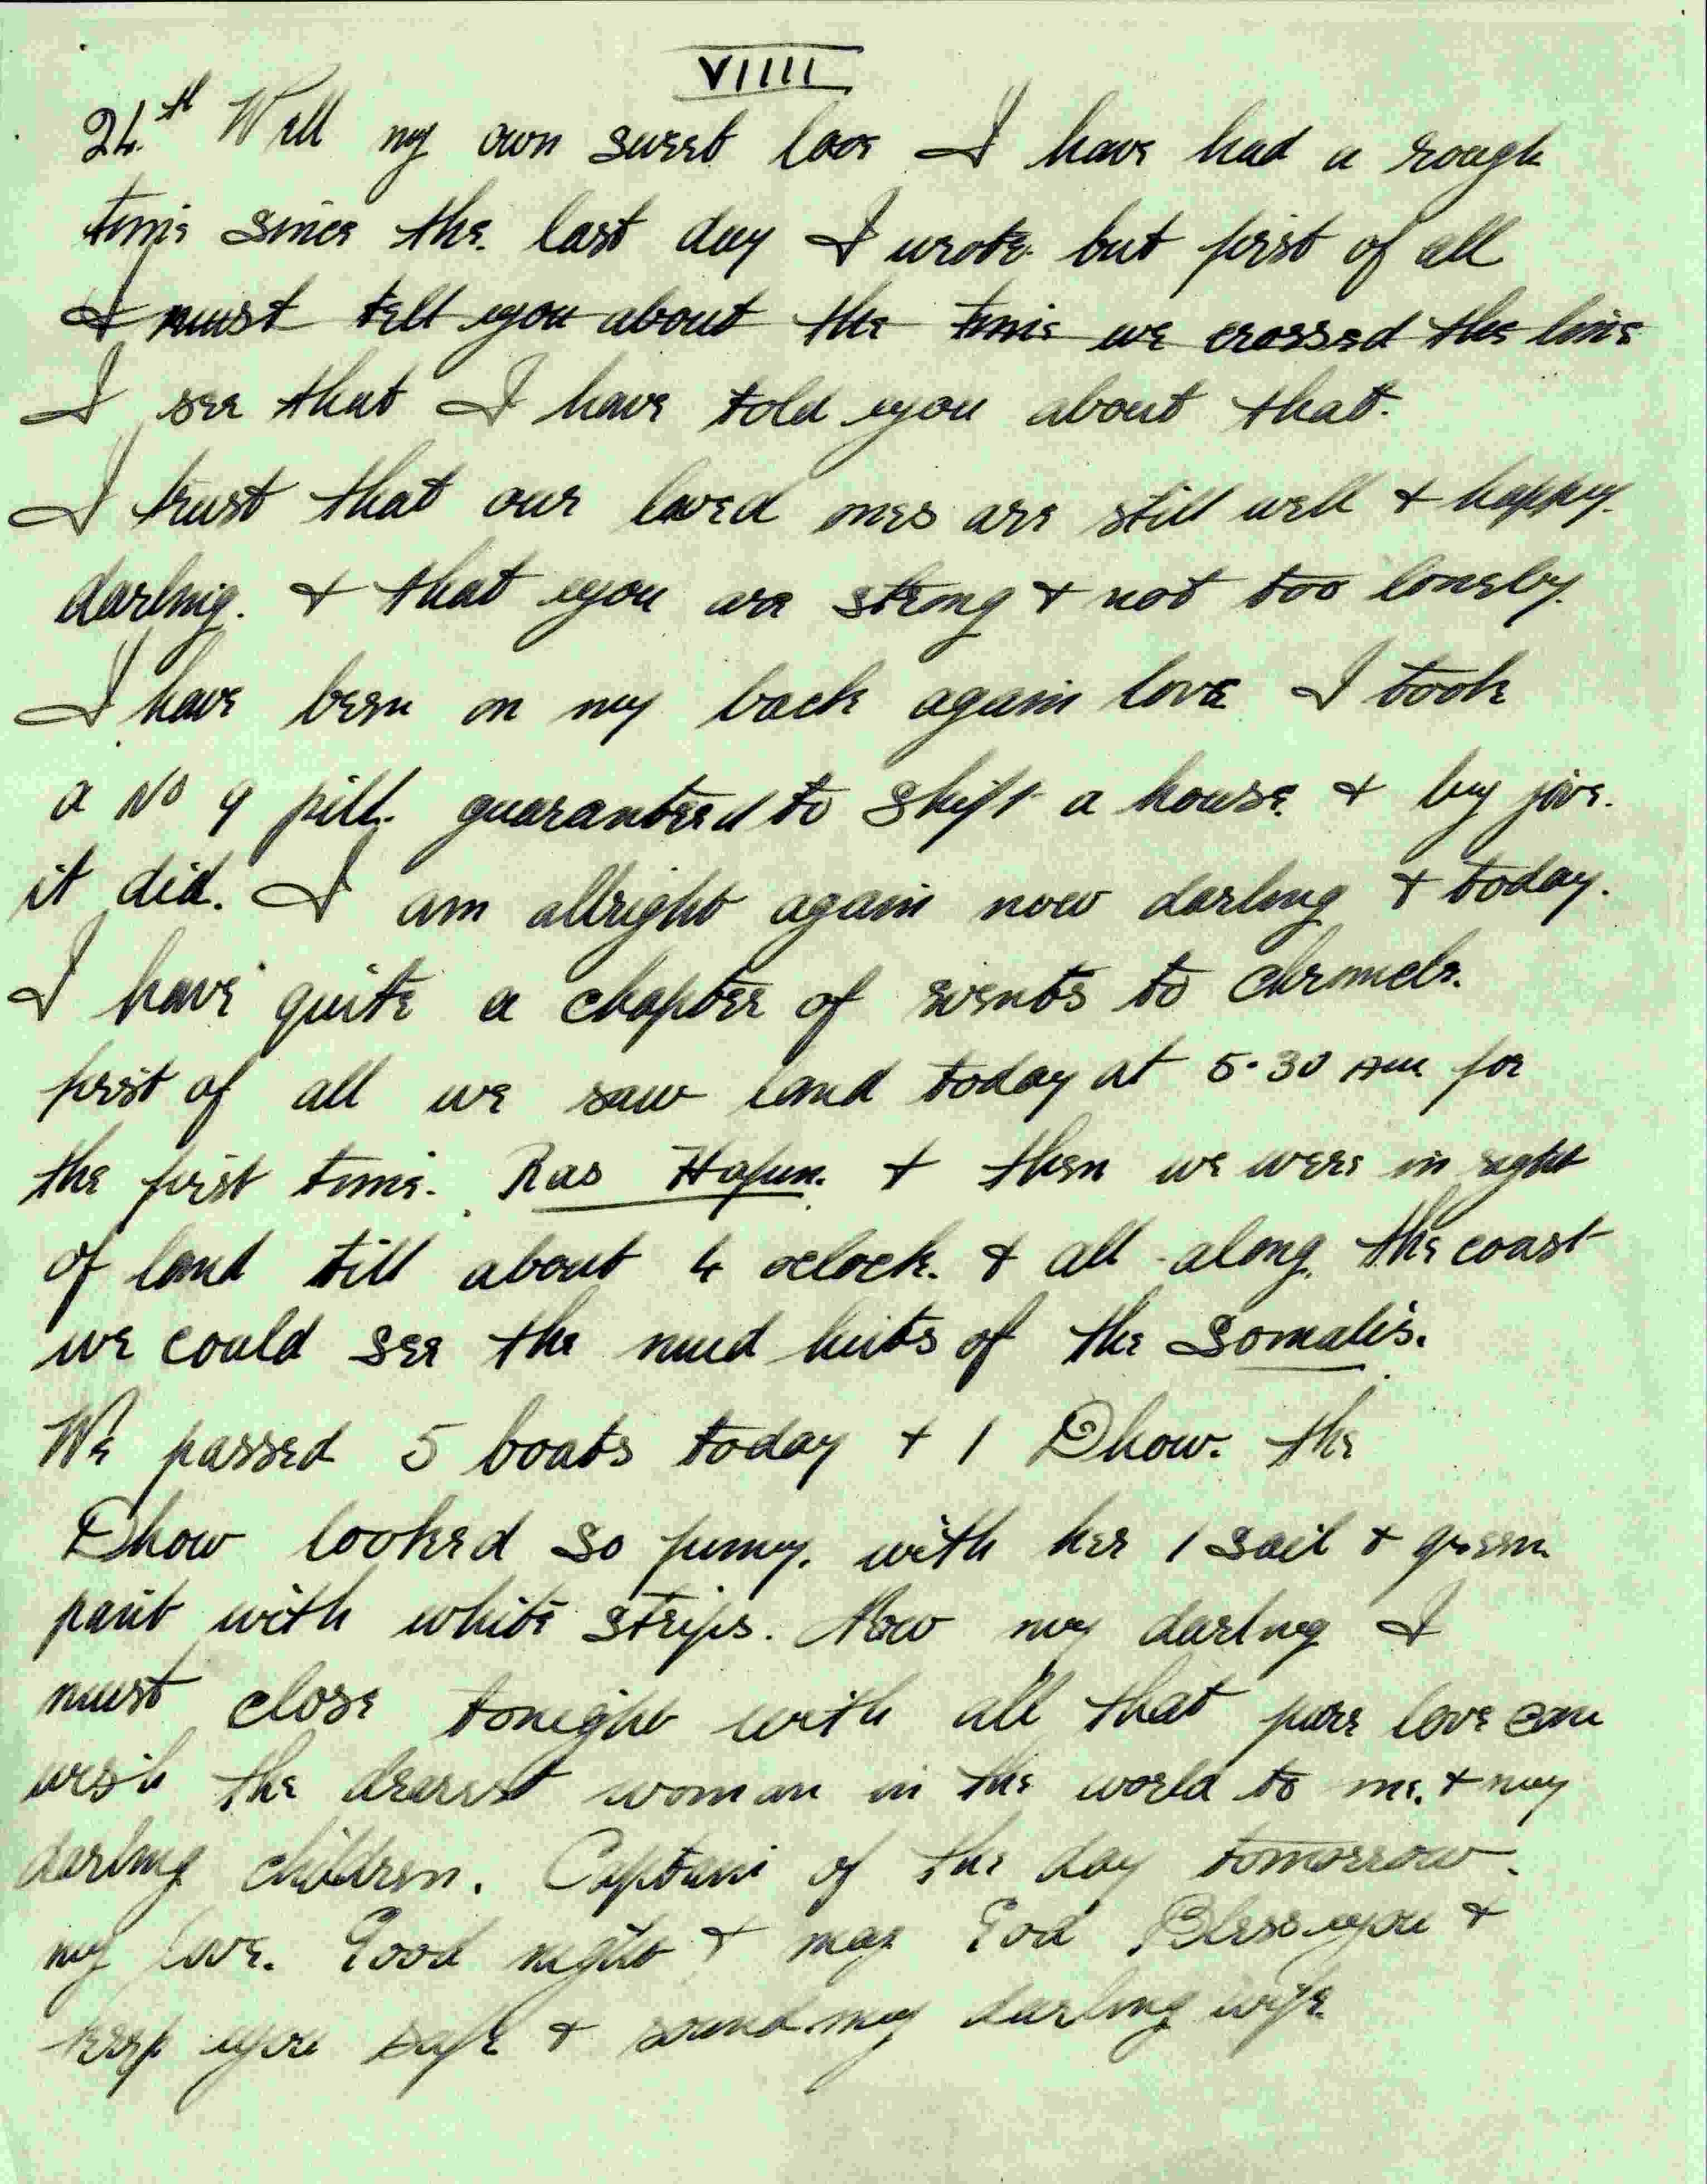 VIIII
24th Well my own sweet love I have had a rough
time since the last day I wrote but first of all
I must tell you about the time we crossed the line
I see that I have told you about that.
I trust that our loved ones are still well + happy.
darling. + that you are strong + not too lonely.
I have been on my back again love I took
a No 9 pill. guaranteed to shift a house. + by jove.
it did. I am allright again now darling + today.
I have quite a chapter of events to chronicle.
first of all we saw land today at 5.30 AM for
the first time. Ras Hafun. + then we were in sight
of land till about 4 oclock. + all along the coast
we could see the mud huts of the Somalis.
We passed 5 boats today + 1 Dhow. the
Dhow looked so funny. with her 1 sail + green
paint with white strips. Now my darling I
must close tonight with all that pure love can
wish the dearest woman in the world to me. + my
darling children. Captain of the day tomorrow.
my love. Good night + may God Bless you +
keep you safe + sound my darling wife.